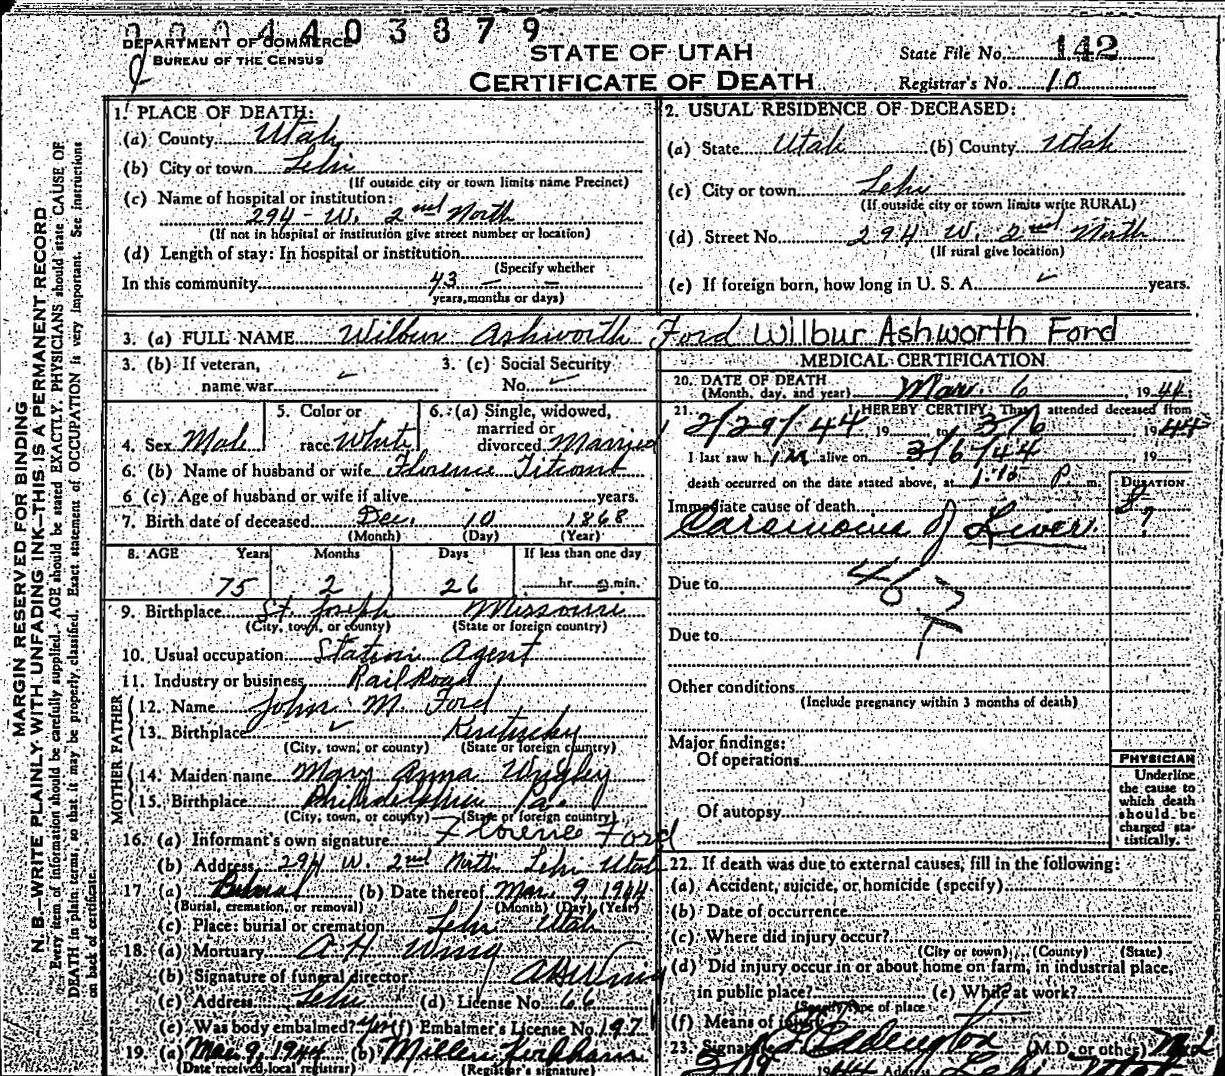 0004403879
DEPARTMENT OF COMMERCE
BUREAU OF THE CENSUS
STATE OF UTAH
CERTIFICATE OF DEATH
State File No. 142
Registrar's No. 10
MARGIN RESERVED FOR BINDING
N. B.—WRITE PLAINLY WITH UNFADING INK—THIS IS A PERMANENT RECORD
Every item of information should be carefully supplied. AGE should be stated EXACTLY. PHYSICIANS should state CAUSE OF
DEATH in plain terms, so that it may be properly classified. Exact statement of OCCUPATION is very important. See instructions
on back of certificate.
1. PLACE OF DEATH:
(a) County Utah
(b) City or town Lehi
(If outside city or town limits name Precinct)
(c) Name of hospital or institution:
294 - W. 2nd North
(If not in hospital or institution give street number or location)
(d) Length of stay: In hospital or institution
(Specify whether
In this community 43 - -
years, months or days)
2. USUAL RESIDENCE OF DECEASED:
(a) State Utah (b) County Utah
(c) City or town Lehi
(If outside city or town limits write RURAL)
(d) Street No. 294 W. 2nd North
(If rural give location)
(e) If foreign born, how long in U. S. A. ✓ years.
3. (a) FULL NAME Wilbur Ashworth Ford Wilbur Ashworth Ford
3. (b) If veteran,
name war ✓
3. (c) Social Security
No. ✓
4. Sex Male
5. Color or
race White
6. (a) Single, widowed,
married or
divorced Married
6. (b) Name of husband or wife Florence Titcomb
6 (c) Age of husband or wife if alive years.
7. Birth date of deceased Dec. 10 1868
(Month) (Day) (Year)
8. AGE Years Months Days If less than one day
75 2 26 hr. min.
9. Birthplace St. Joseph Missouri
(City, town, or county) (State or foreign country)
10. Usual occupation Station Agent
11. Industry or business Rail Road
FATHER
12. Name John M Ford
13. Birthplace ✓ Kentucky
(City, town, or county) (State or foreign country)
MOTHER
14. Maiden name Mary Anna Wrigley
15. Birthplace Philadelphia Pa.
(City, town, or county) (State or foreign country)
16. (a) Informant's own signature Florence Ford
(b) Address 294 W. 2nd North Lehi Utah
17 (a) Burial (b) Date thereof Mar. 9, 1944
(Burial, cremation, or removal) (Month) (Day) (Year)
(c) Place: burial or cremation Lehi Utah
18. (a) Mortuary A H Wing
(b) Signature of funeral director A H Wing
(c) Address Lehi (d) License No. 66
(e) Was body embalmed? yes (f) Embalmer's License No. 197
19. (a) Mar. 9, 1944 (b) Millen Kirkham
(Date received local registrar) (Registrar's signature)
MEDICAL CERTIFICATION
20. DATE OF DEATH
(Month, day, and year) Mar. 6, 1944
21. I HEREBY CERTIFY, That I attended deceased from
2/29/44, 19 to 3/6 1944
I last saw him alive on 3/6/44, 19
death occurred on the date stated above, at P. m.
DURATION
Immediate cause of death
Carcinoma of Liver ?
Due to 46
Due to
Other conditions
(Include pregnancy within 3 months of death)
Major findings:
Of operations
Of autopsy
PHYSICIAN
Underline
the cause to
which death
should be
charged sta-
tistically.
22. If death was due to external causes, fill in the following:
(a) Accident, suicide, or homicide (specify)
(b) Date of occurrence
(c) Where did injury occur?
(City or town) (County) (State)
(d) Did injury occur in or about home on farm, in industrial place,
in public place? (e) While at work?
(Specify type of place
(f) Means of injury
23. Signature Eddington (M.D. or other) M.D.
3/19 1944 Address Lehi Utah